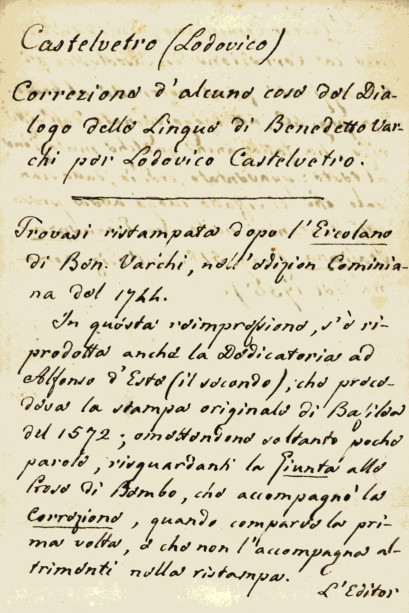 Castelvetro (Lodovico)
Correzione d'alcune cose del Dia-
logo delle Lingue di Benedetto Var-
chi per Lodovico Castelvetro.
Trovasi ristampata dopo l'Ercolano
di Ben. Varchi, nell'edizion Cominia-
na del 1744.
In questa reimpressione, s'è ri-
prodotta anche la Dedicatoria ad
Alfonso d'Este (il secondo), che prece-
deva la stampa originale di Basilea
del 1572; omettendone soltanto poche
parole, risguardanti la Giunta alle
Prose di Bembo, che accompagnò la
Correzione, quando comparve la pri-
ma volta, e che non l'accompagna al-
trimenti nella ristampa.
L'Editor